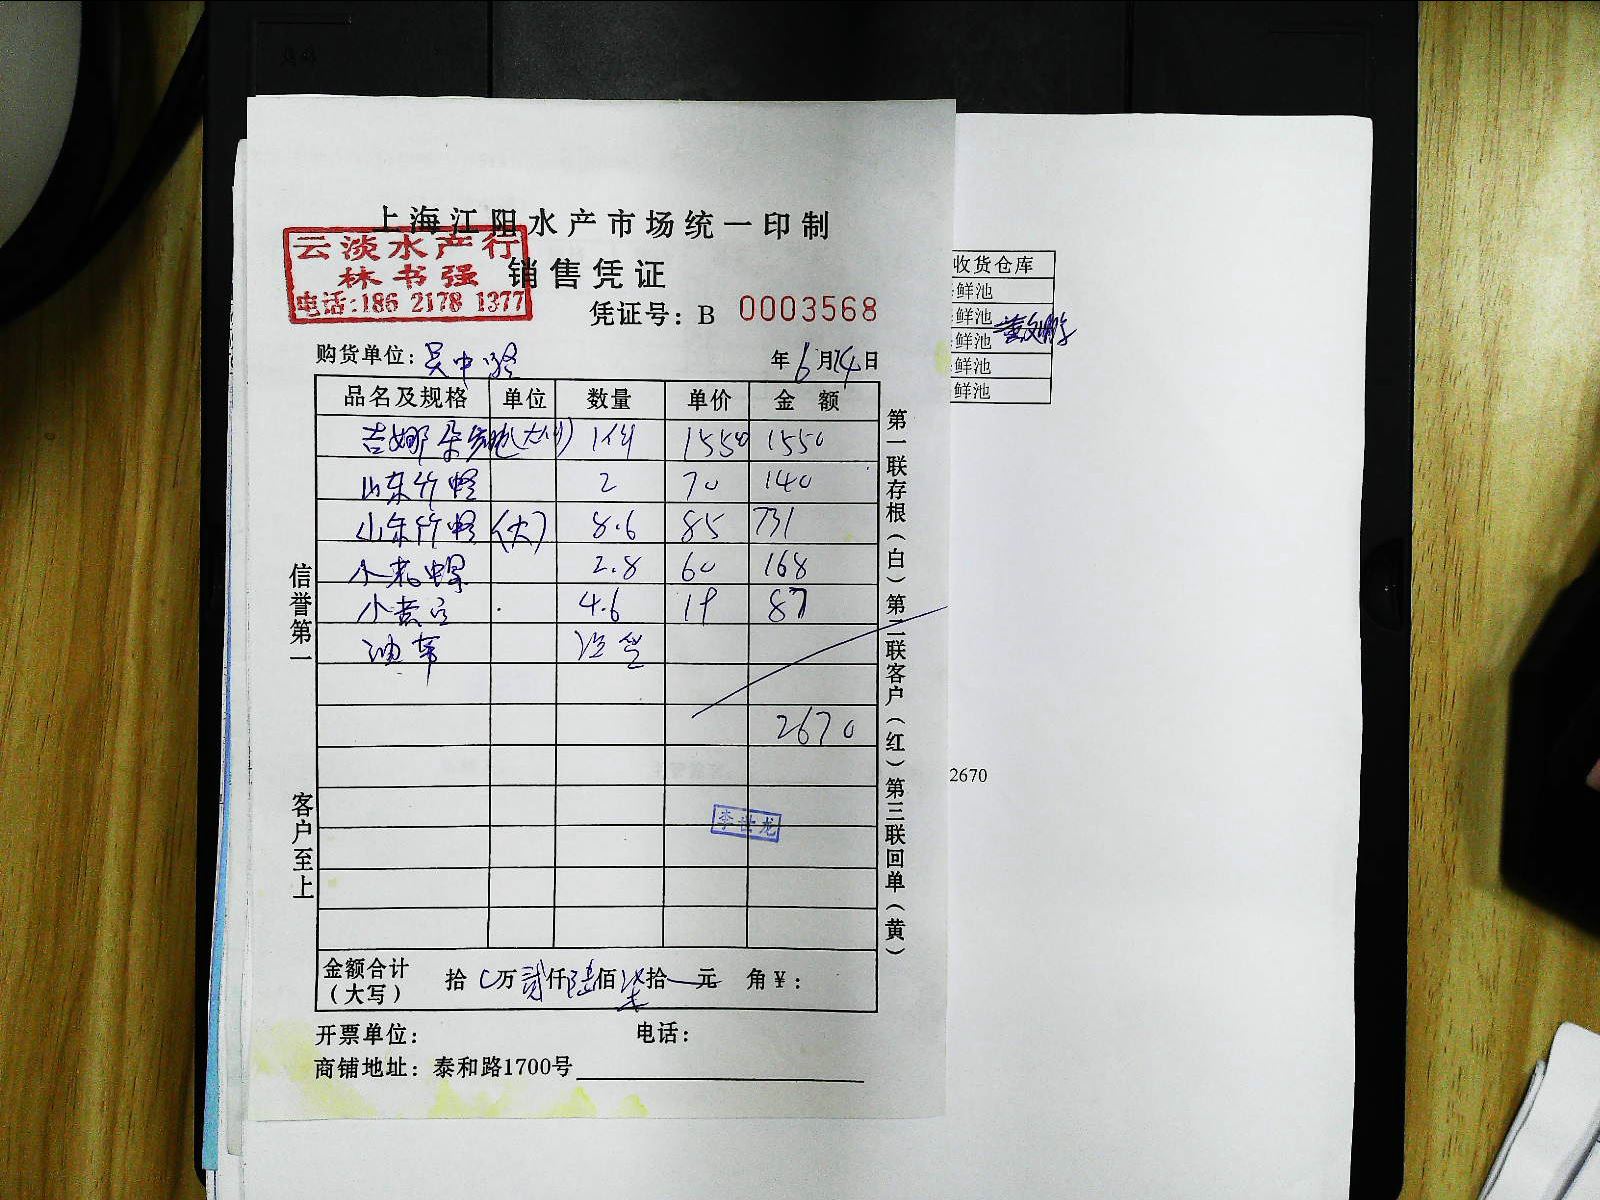 上海江阳水产市场统一印制
云淡水产行
林书强
电话:186 2178 1377
销售凭证
凭证号: B 0003568
购货单位: 吴中路
年6月24日
品名及规格 单位 数量 单价 金额
吉娜朵 1 1550 1550
山东竹蛏 2 70 140
山东竹蛏 (大) 8.6 85 731
小 螺 2.8 60 168
小黄 4.6 19 87
2670
李世龙
金额合计 (大写) 拾 万贰仟陆佰柒拾 元 角¥:
开票单位: 电话:
商铺地址: 泰和路1700号
信誉第一
客户至上
第一联存根(白)第二联客户(红)第三联回单(黄)
收货仓库
鲜池
鲜池
鲜池
鲜池
鲜池
2670